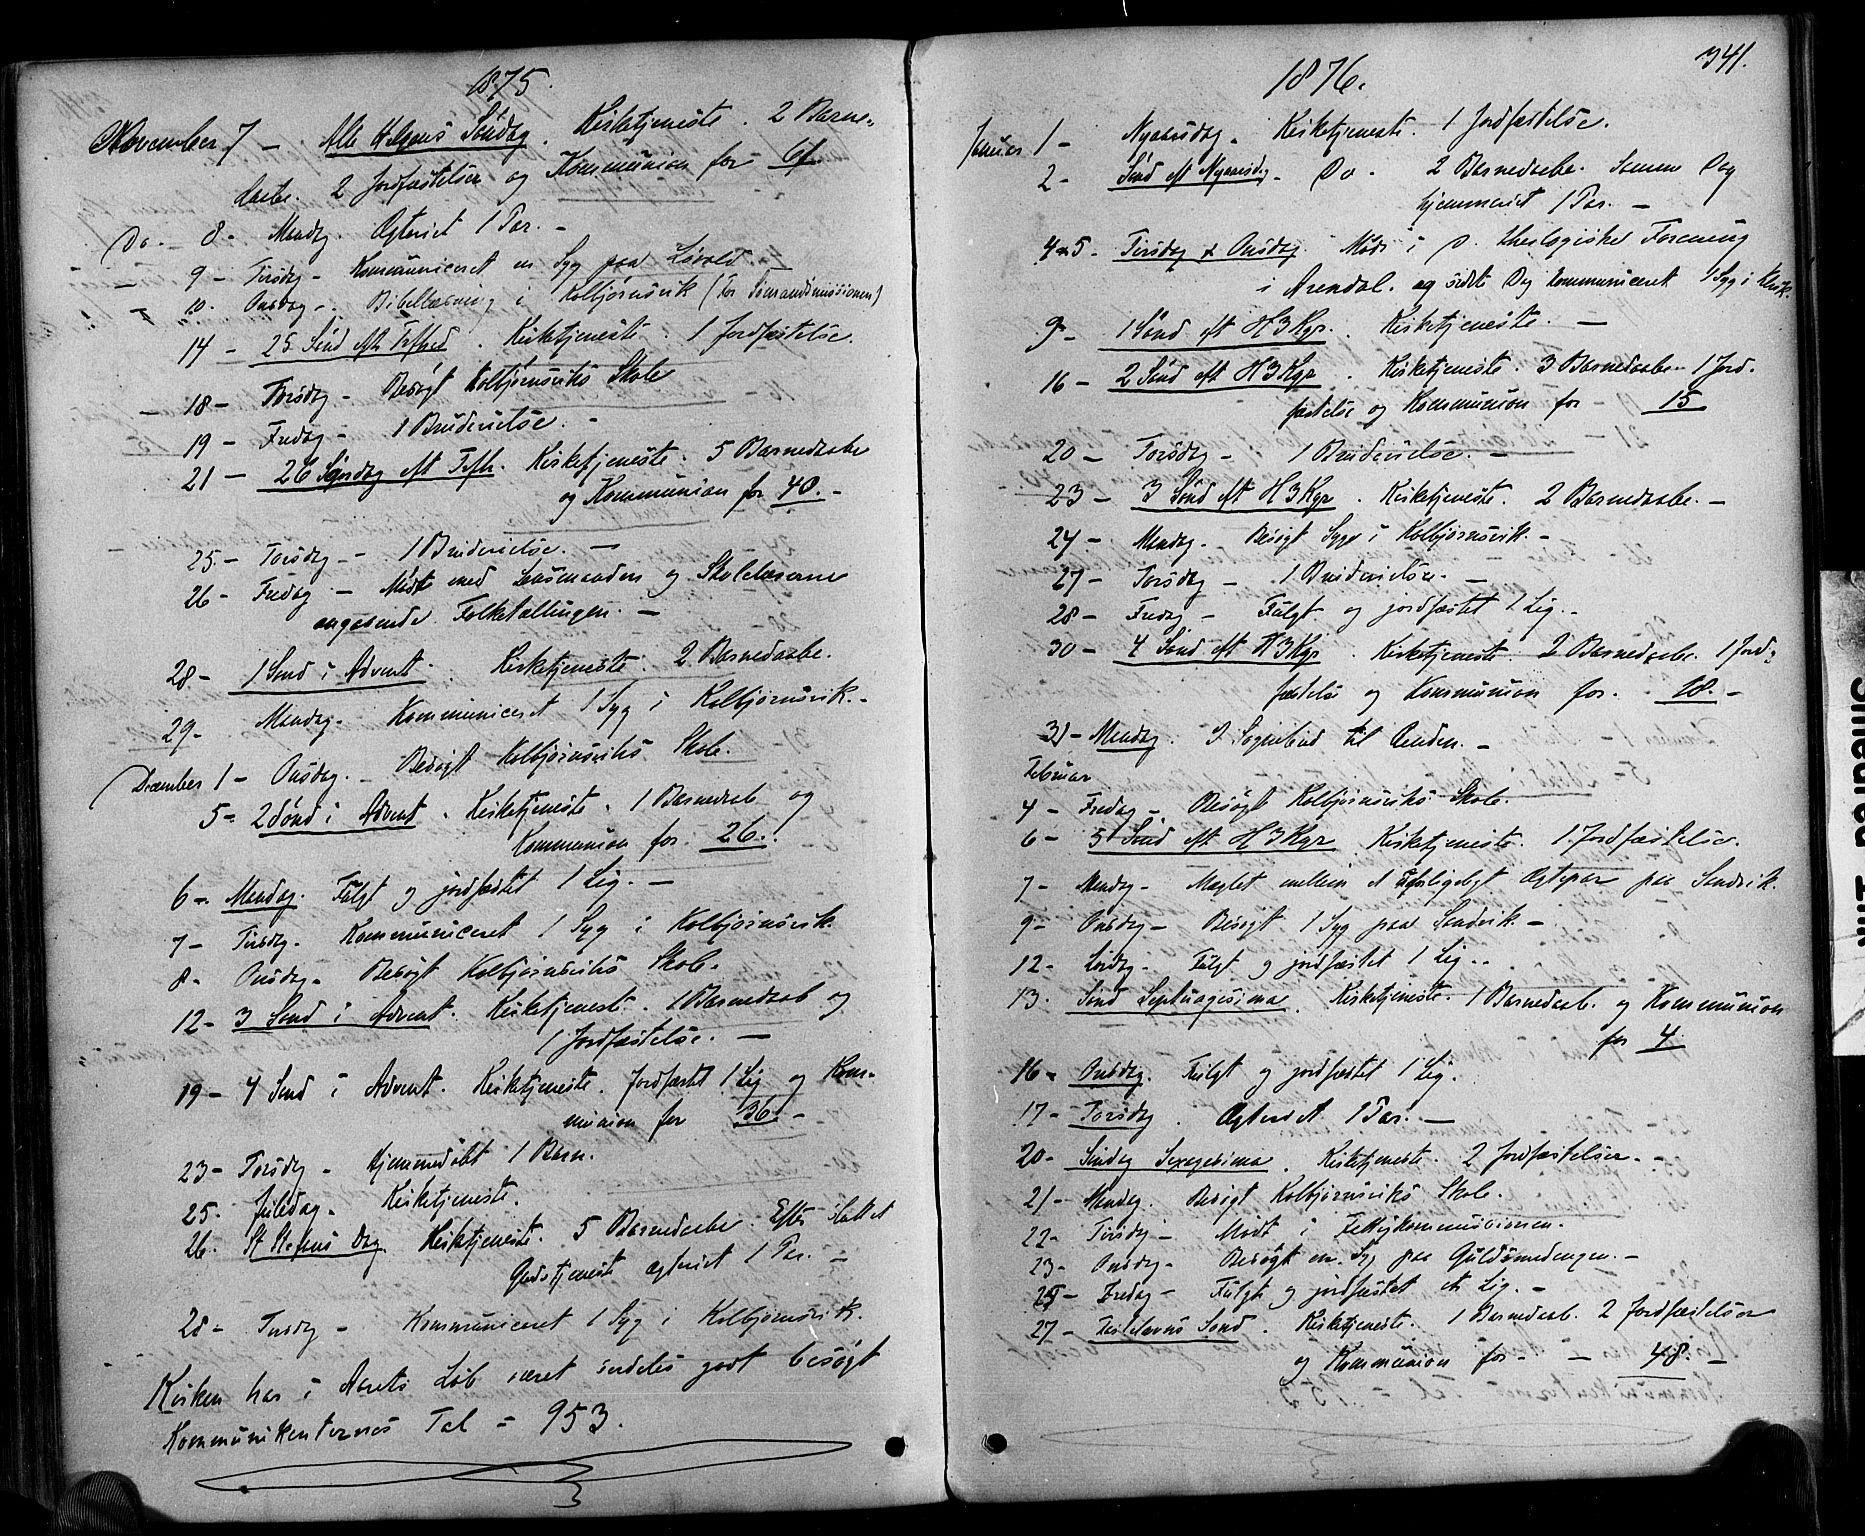 1875.
November 7 — Alle Helgens Søndag. Kirketjeneste. 2 Barne-
daabe. 2 Jordfæstelser og Kommunion for 61
Do. 8 - Mandag. Ægteviet 1 Par. —
9 - Tirsdag - Kommuniceret en Syg paa Løvold
10. Onsdag - Bibellæsning i Kolbjørnsvik (for Sømandsmissionen)
14 - 25 Sønd eft Trfhed. Kirketjeneste. 1 Jordfæstelse.
18 - Torsdag - Besøgt Kolbjørnsviks Skole
19 - Fredag - 1 Brudevielse. -
21 - 26 Søndag eft Trfh. Kirketjeneste. 5 Barnedaabe
og Kommunion for 40. -
25. - Torsdag - 1 Brudevielse. —
26 - Fredag - Møde med Lensmanden og Skolelærerne
angaaende Folketællingen. —
28 - 1 Sønd i Advent. Kirketjeneste. 2 Barnedaabe.
29 - Mandag. Kommuniceret 1 Syg i Kolbjørnsvik. -
December 1 - Onsdag. - Besøgt Kolbjørnsviks Skole.
5 - 2 Sønd i Advent. Kirketjeneste. 1 Barnedaab og
Kommunion for 26.
6 - Mandag. Fulgt og jordfæstet 1 Lig. —
7 - Tirsdag. Kommuniceret 1 Syg i Kolbjørnsvik.
8 - Onsdag - Besøgt Kolbjørnsviks Skole.
12 - 3 Sønd i Advent. Kirketjeneste. 1 Barnedaab og
1 Jordfæstelse. —
19 - 4 Sønd i Advent. Kirketjeneste. Jordfæstet 1 Lig og Kom-
munion for 36. -
23 - Torsdag - Hjemmedøbt 1 Barn.
25. Juledag. Kirketjeneste.
26. St Stefans Dag. Kirketjeneste. 5 Barnedaabe. Efter sluttet
Gudstjeneste ægteviet 1 Par. —
28 - Tirsdag - Kommuniceret 1 Syg i Kolbjørnsvik.
Kirken har i Aarets Løb været særdeles godt besøgt
Kommunikanternes Tal = 953.
1876.
341.
Januar 1 - Nyaarsdag. Kirketjeneste. 1 Jordfæstelse.
2 - Sønd eft Nyaarsdg - Do - 2 Barnedaabe. Samme Dag
hjemmeviet 1 Par. —
4 & 5 - Tirsdag & Onsdag. Møde i theologiske Forening
i Arendal. og sidste Dag kommuniceret 1 Syg i
9 - 1 Sønd eft H 3 Kgr. Kirketjeneste. —
16 - 2 Sønd eft H 3 Kgr. Kirketjeneste. 3 Barnedaabe 1 Jord-
fæstelse og Kommunion for 15
20 - Torsdag - 1 Brudevielse. —
23 - 3 Sønd eft H 3 Kgr. Kirketjeneste. 2 Barnedaabe. -
24 - Mandag. Besøgt Syge i Kolbjørnsvik. -
27 - Torsdag - 1 Brudevielse. —
28 - Fredag - Fulgt og jordfæstet 1 Lig. -
30 - 4 Sønd eft H 3 Kgr. Kirketjeneste. 2 Barnedaabe. 1 Jord-
fæstelse og Kommunion for. 18. -
31 - Mandag. I Sognebud til -
Februar
4 - Fredag - Besøgt Kolbjørnsviks Skole.
6 - 5 Sønd eft H 3 Kgr Kirketjeneste. 1 Jordfæstelse.
7 - Mandag - Mæglet mellem et Ægtepar paa Sandvik.
9 - Onsdag - Besøgt 1 Syg paa Sandvik. -
12 - Lørdag - Fulgt og jordfæstet 1 Lig. -
13. Sønd Septuagisima. Kirketjeneste. 1 Barnedaab. og Kommunion
for 4.
16 - Onsdag. Fulgt og jordfæstet 1 Lig.
17 - Torsdag. Ægteviet 1 Par. —
20 - Søndag Sexagesima. Kirketjeneste. 2 Jordfæstelser. -
21 - Mandag. Besøgt Kolbjørnsviks Skole.
22 - Tirsdag - Mødt i Fattigkommissionen.
23 - Onsdag - Besøgt en Syg paa Guldsmedengen. -
25 - Fredag - Fulgt og jordfæstet et Lig. -
27 - Fastelavns Sønd. Kirketjeneste. 1 Barnedaab. 2 Jordfæstelser
og Kommunion for - 48. -